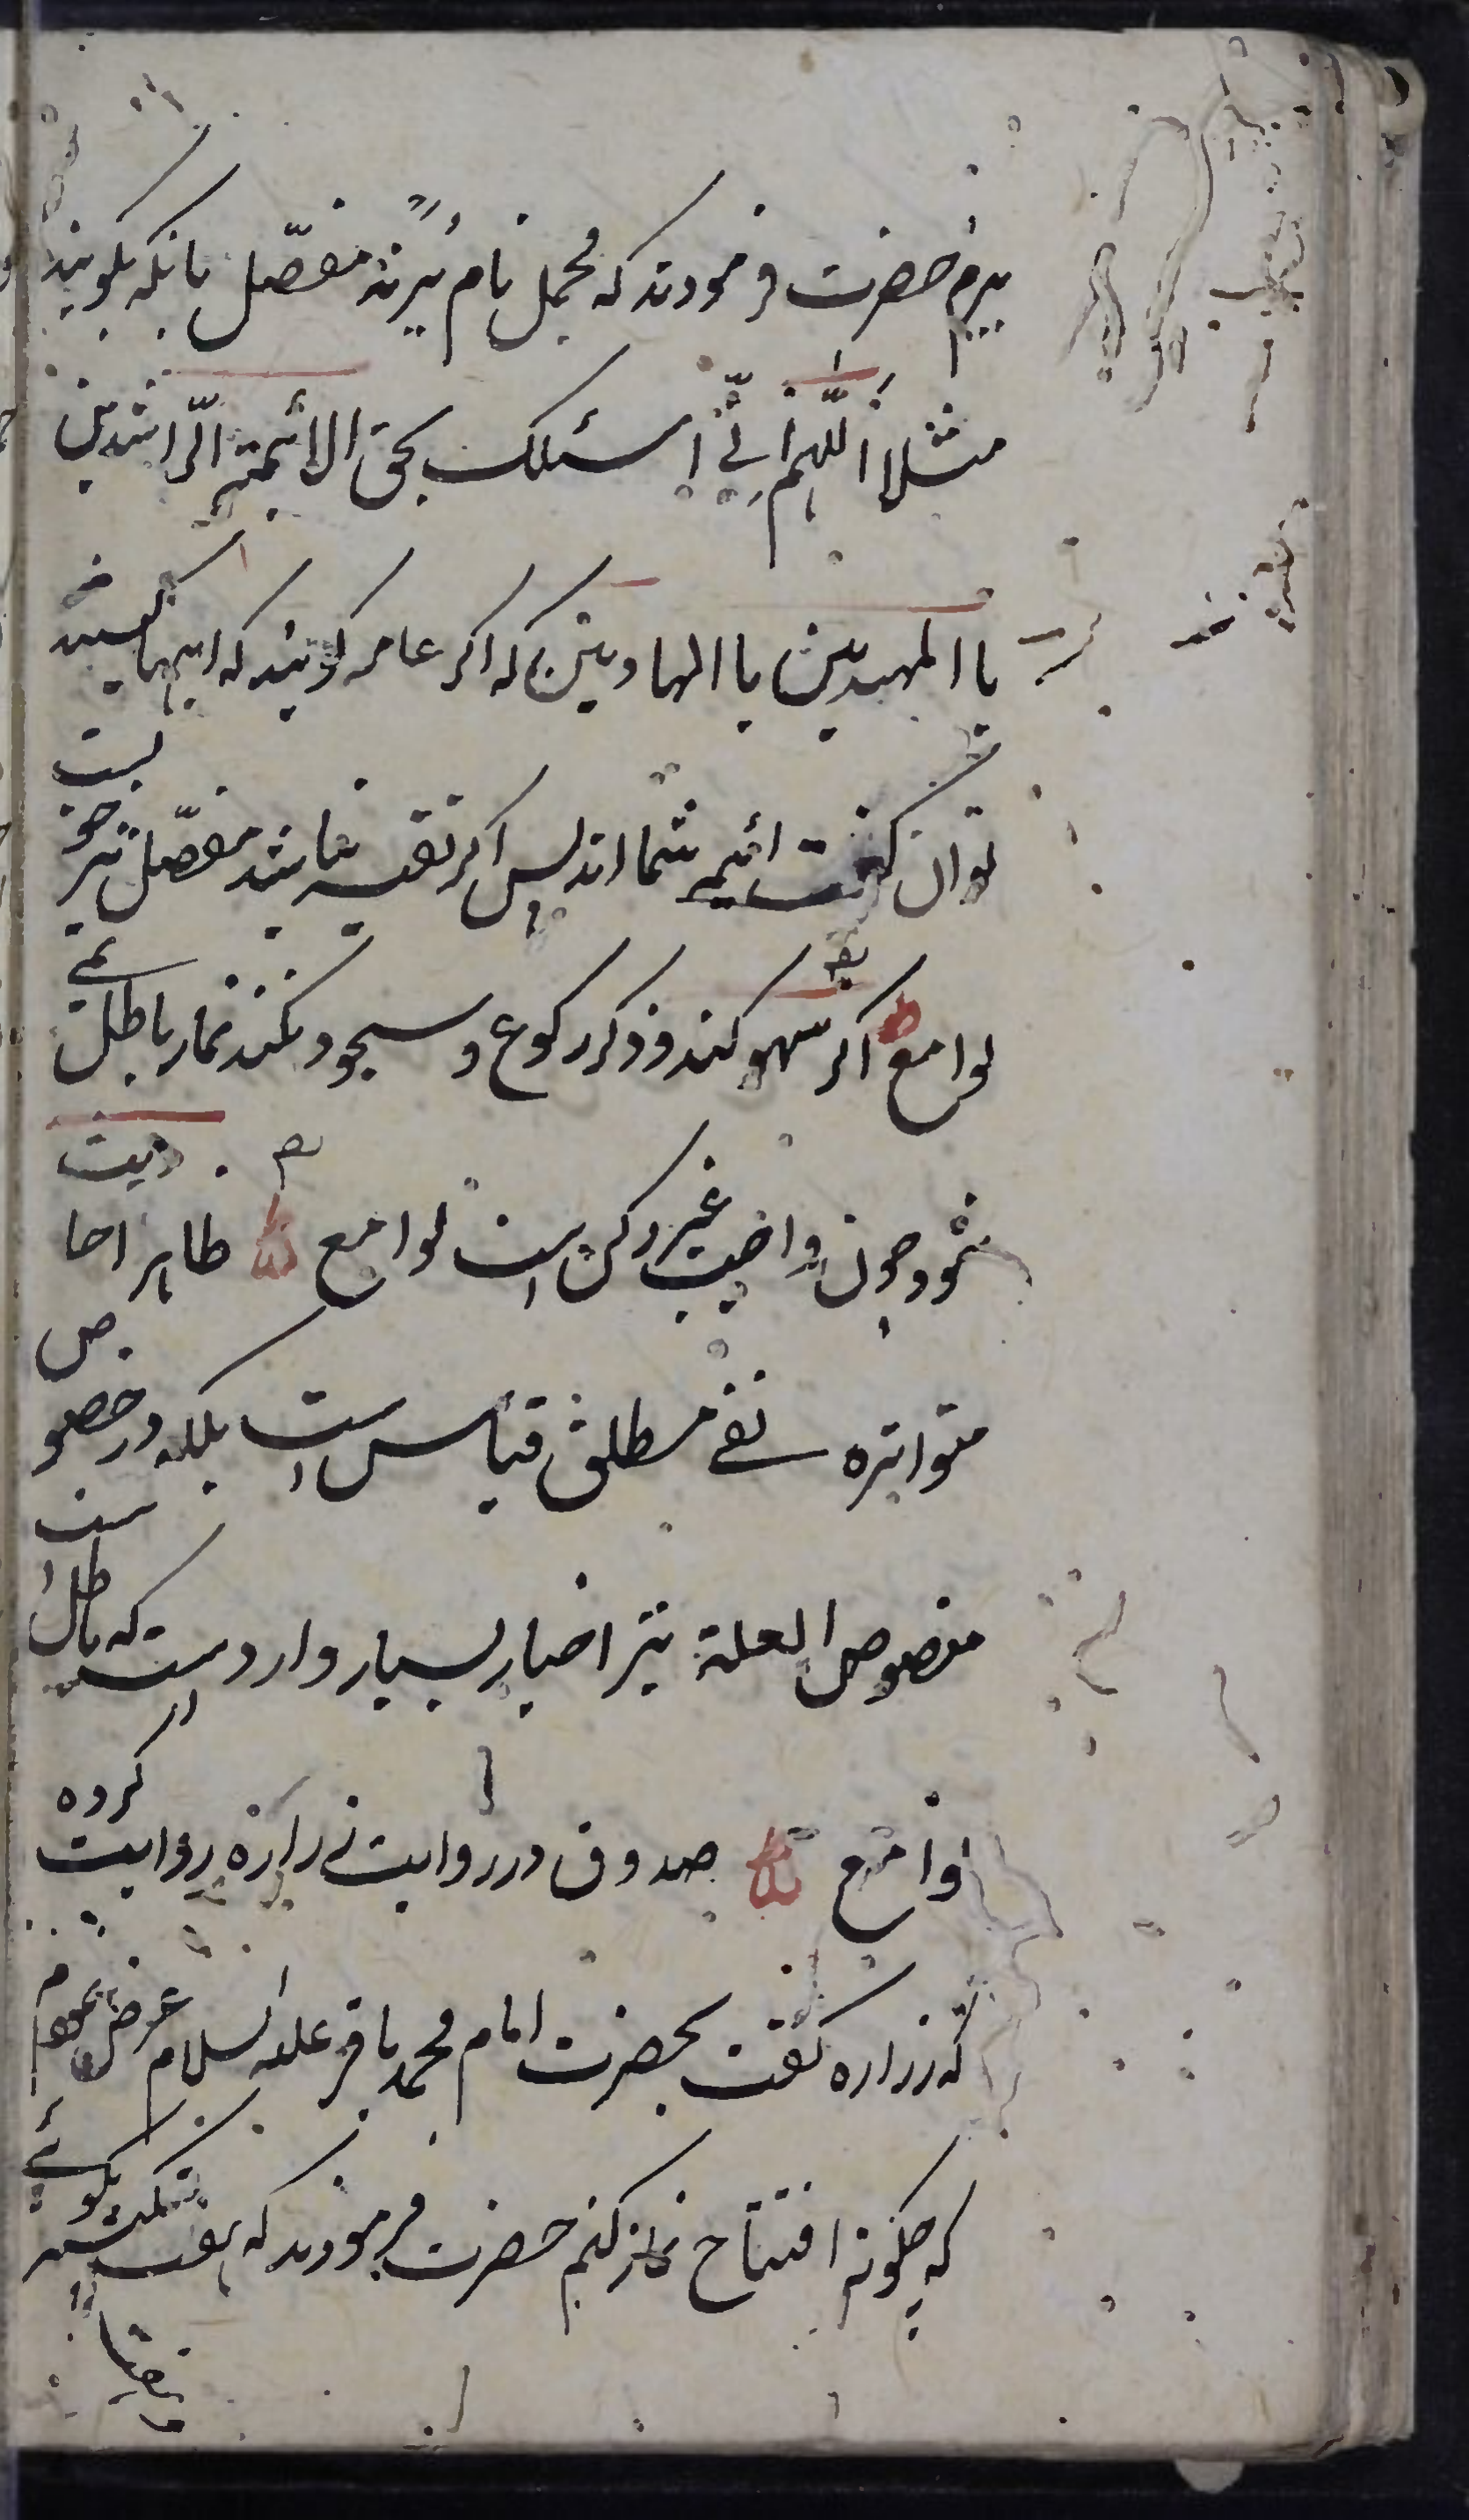 برم حضرت فرمودند که مجمل نام برند مفصّل بانکه بکویند
مثلا اللّهم انّی اسئلک بحق الائمة الرّاشدین
یا المهدیین یا الهادیین که اکر عامه کویند که اینها کیستند
توان کفت ائمه شما اند پس اکر تقیه نباشد مفصّل نیز خوبست
لوامع اکر سهو کند و ذکر رکوع و سجود نکند نماز باطل نمی
شود چون واجب غیر رکن است لوامع ظاهر احادیث
متواتره نفی مطلق قیاس است بلکه در خصوص
منصوص العلة نیز اخبار بسیار وارد است که باطل است
لوامع صدوق در روایت زراره روایت کرده
که زراره کفت بحضرت امام محمد باقر علیه السلام عرض نمودم
که چکونه افتتاح نماز کنم حضرت فرمودند که هفت تکبیر بکوئی